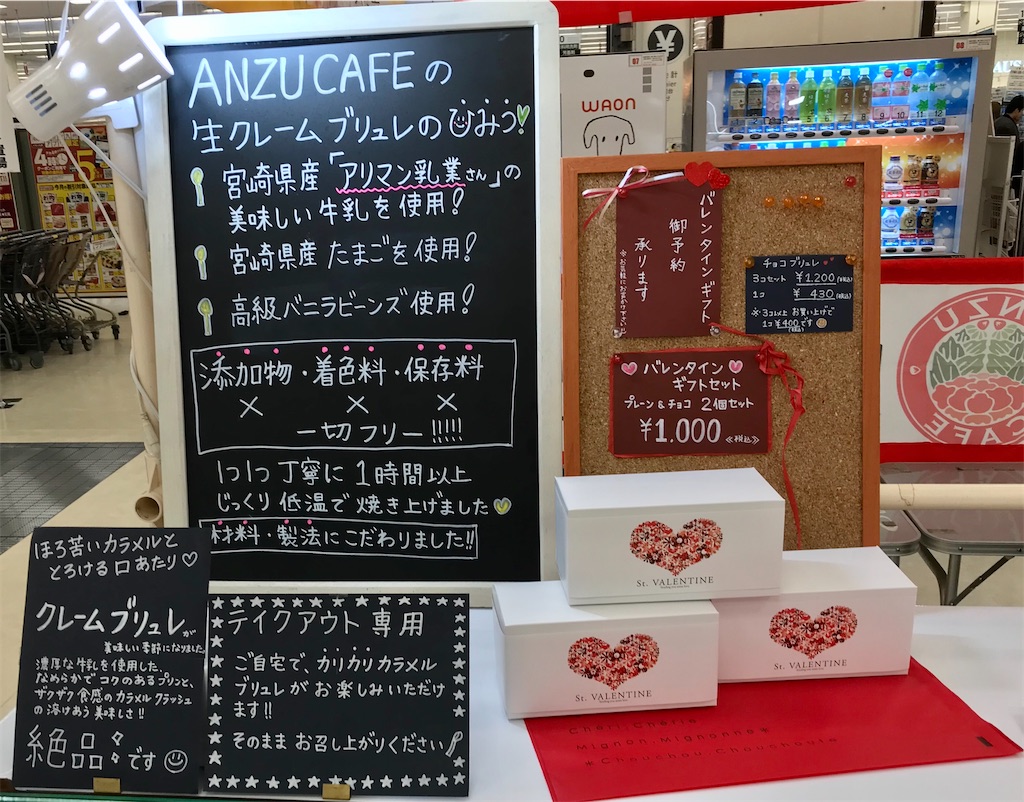 ANZU CAFEの
生クレームブリュレのひみつ!
宮崎県産「アリマン乳業さん」の
美味しい牛乳を使用!
宮崎県産 たまごを使用!
高級バニラビーンズ使用!
添加物・着色料・保存料
× × ×
一切フリー!!!!!
1つ1つ丁寧に1時間以上
じっくり低温で焼き上げました
材料・製法にこだわりました!!
ほろ苦いカラメルと
とろける口あたり♡
クレームブリュレが
美味しい季節になりました
濃厚な牛乳を使用した、
なめらかでコクのあるプリンと、
ザクザク食感のカラメルクラッシュ
の溶けあう美味しさ!!
絶品々です
テイクアウト専用
ご自宅で、カリカリカラメル
ブリュレがお楽しみいただけ
ます!!
そのままお召し上がりください
WAON
07
バレンタインギフト
御予約
承ります
※お気軽にお声かけ下さい
チョコブリュレ
3コセット ¥1,200(税込)
1コ ¥430(税込)
※3コ以上お買い上げで
1コ¥400です
(税込)
バレンタイン
ギフトセット
プレーン&チョコ 2個セット
¥1,000 ≪税込≫
St. VALENTINE
St. VALENTINE
St. VALENTINE
Chéri,Chérie
Mignon,Mignonne*
*Chouchou,Chouchoute*
ANZU
CAFE